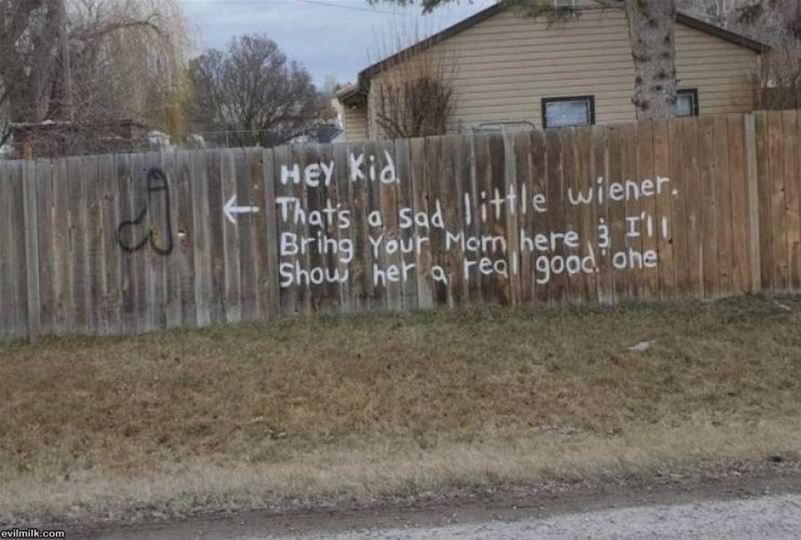 Hey Kid,
← That's a sad little wiener.
Bring Your Mom here & I'll
Show her a real good one
evilmilk.com